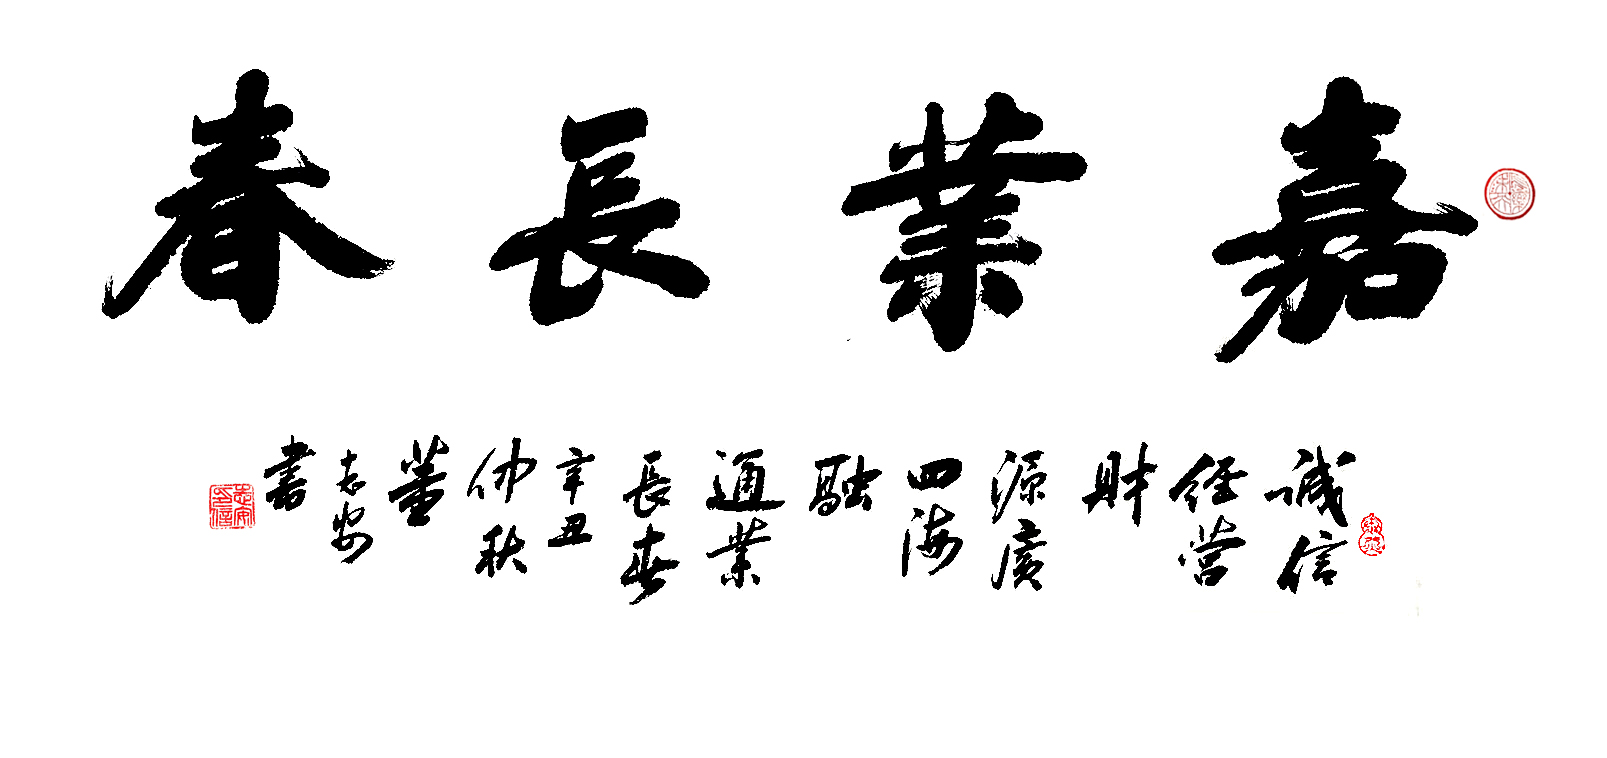 嘉業長春
誠信
經营
財
源廣
四海
融
通業
長春
辛丑
仲秋
董
志安
書
志安印信